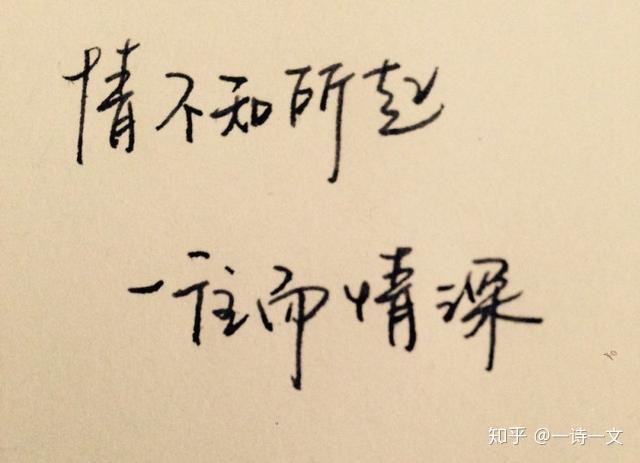 情不知所起
一往而情深
知乎 @一诗一文